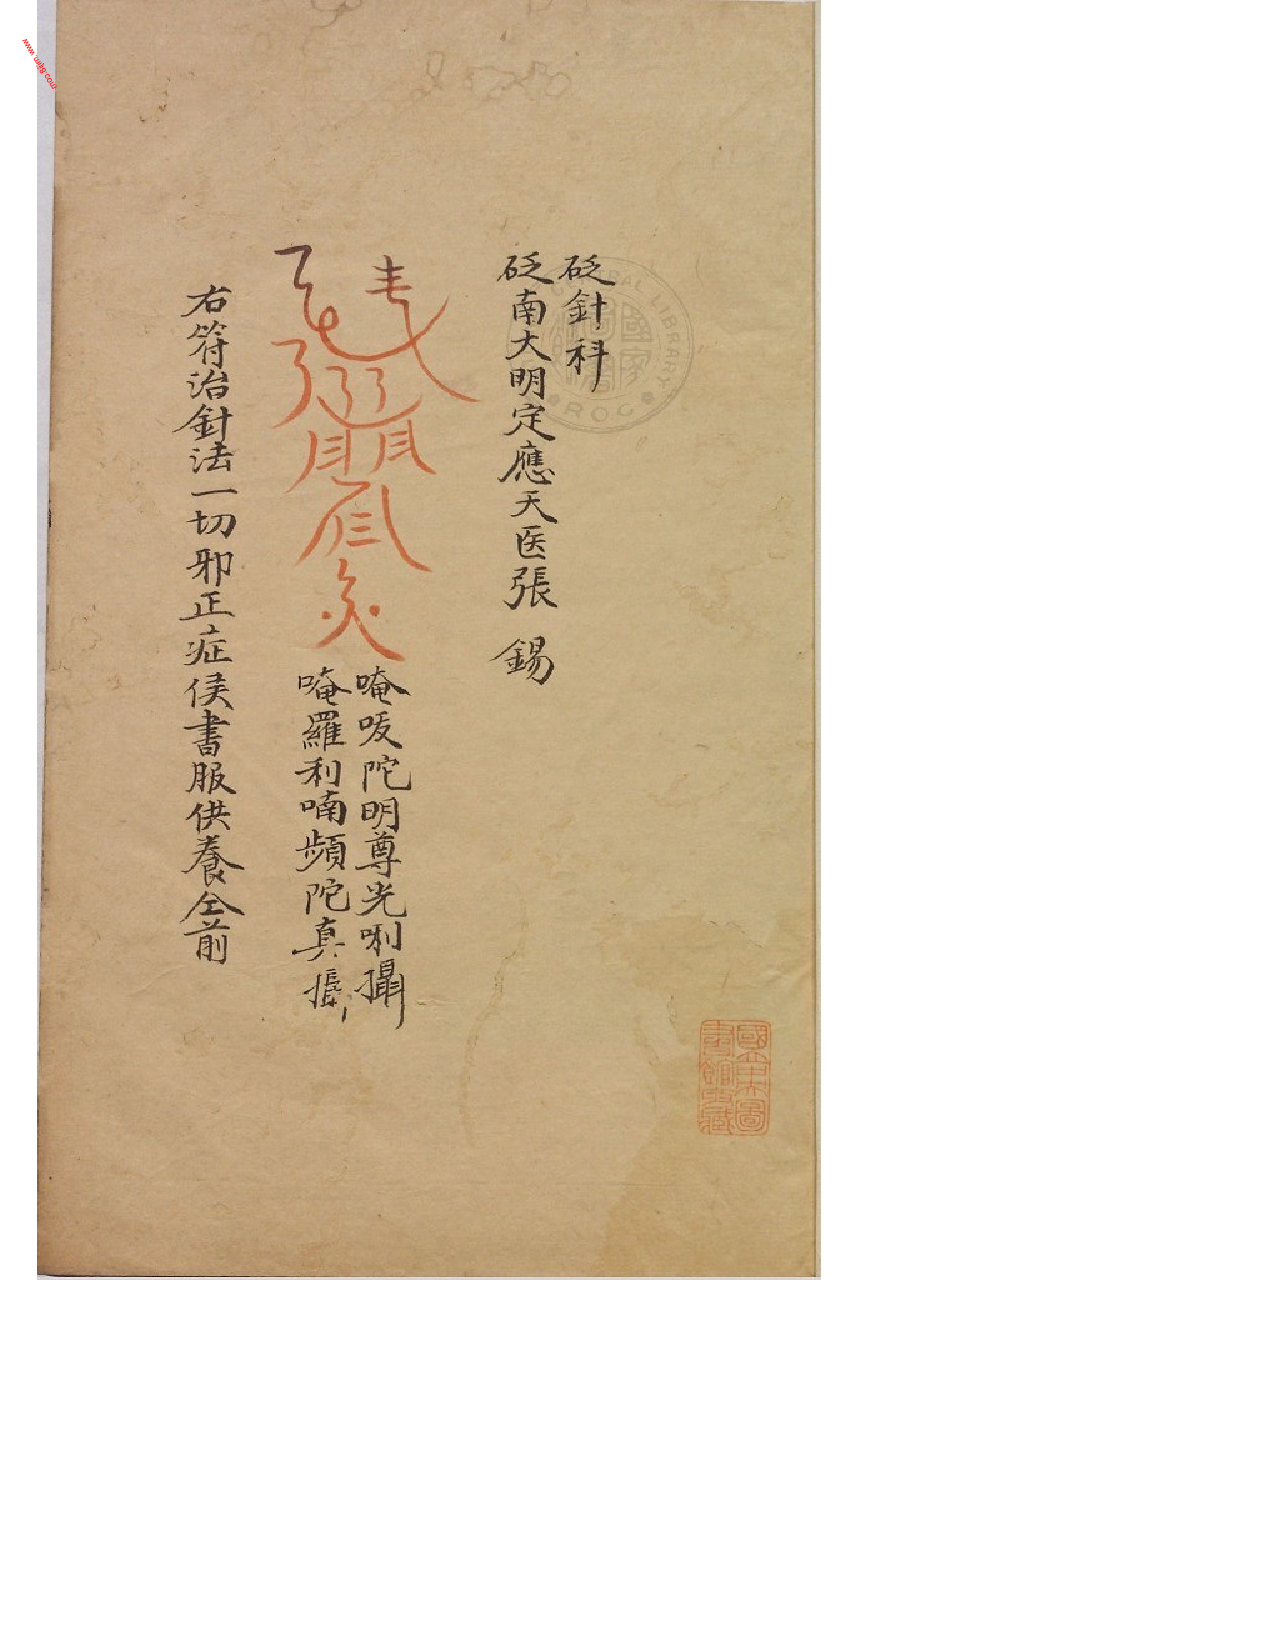 砭針科
砭南大明定應天医張 錫
唵㗋陀明尊光唎攝
唵羅利喃頻陀真攝
右符治針法一切邪正症侯書服供養仝前
國立中央圖
書館收藏
CENTRAL LIBRARY
ROC
國家
圖書
www.